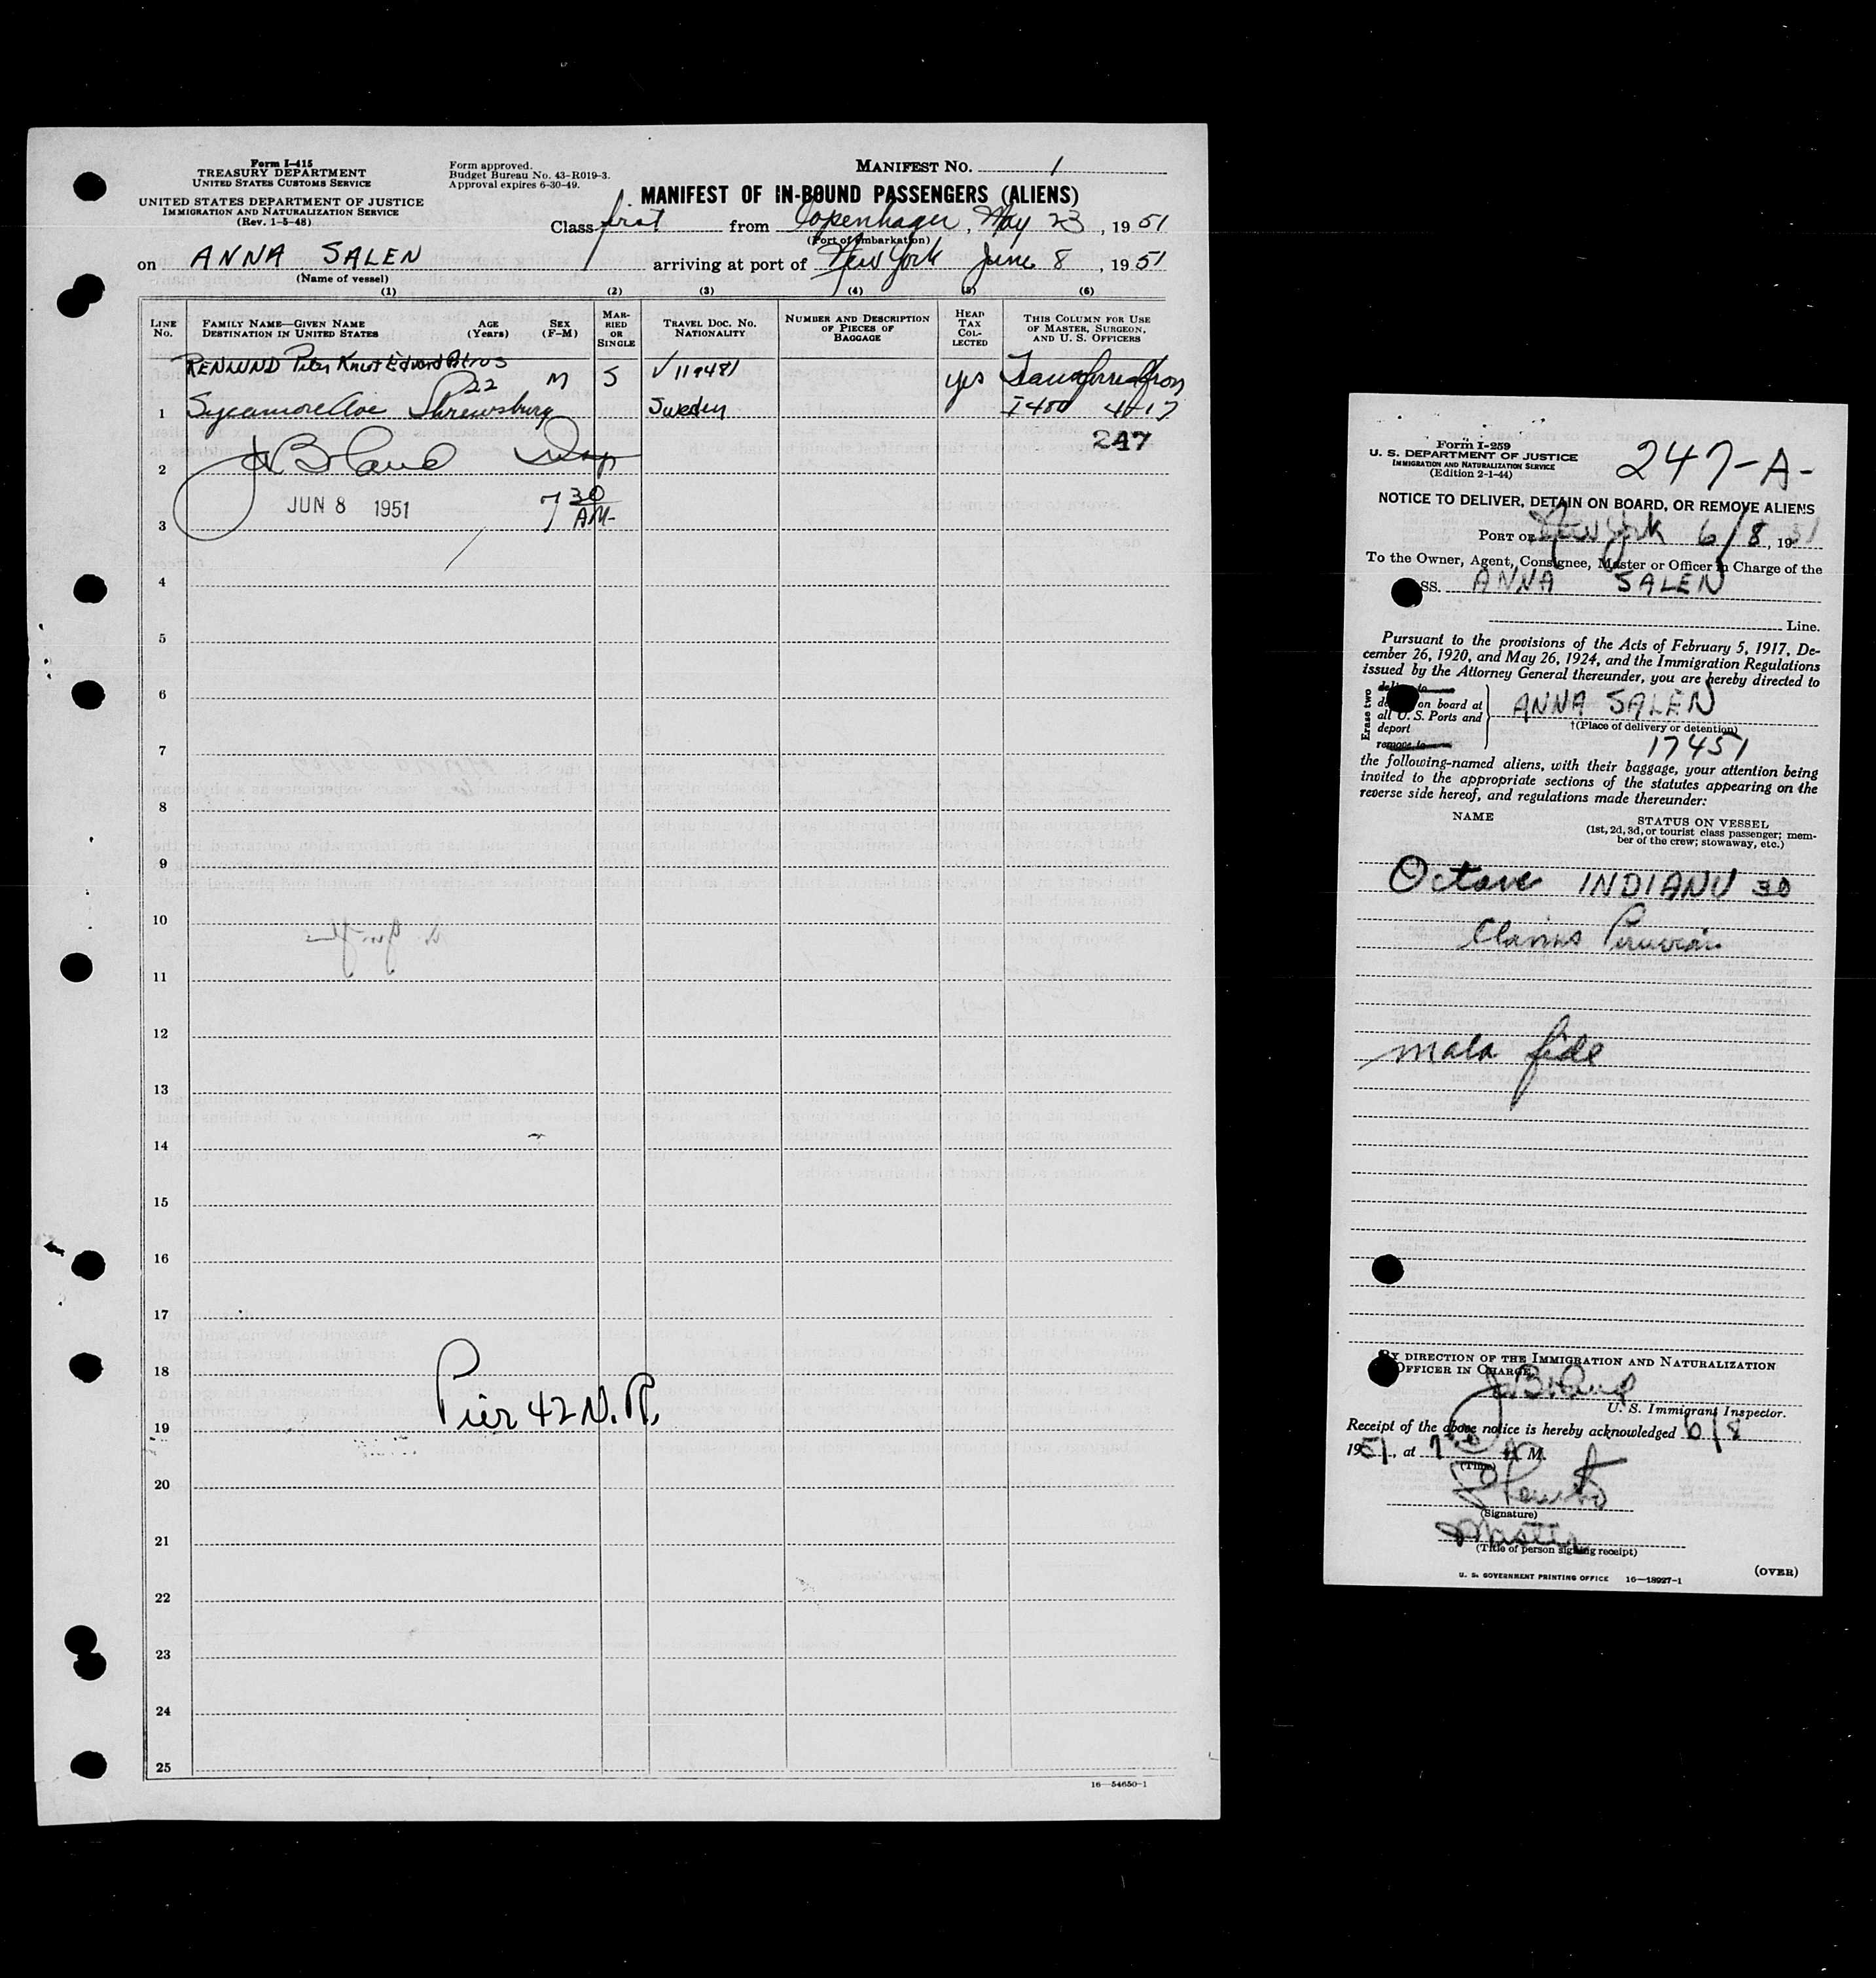 Form I-415
TREASURY DEPARTMENT
UNITED STATES CUSTOMS SERVICE
UNITED STATES DEPARTMENT OF JUSTICE
IMMIGRATION AND NATURALIZATION SERVICE
(Rev. 1-5-48)
Form approved.
Budget Bureau No. 43-R019-3.
Approval expires 6-30-49.
MANIFEST NO. 1
MANIFEST OF IN-BOUND PASSENGERS (ALIENS)
Class first from Copenhagen, May 23, 1951
(Port of embarkation)
on ANNA SALEN arriving at port of New York June 8, 1951
(Name of vessel)
(1) (2) (3) (4) (5) (6)
LINE No.
FAMILY NAME—GIVEN NAME
DESTINATION IN UNITED STATES
AGE (Years)
SEX (F-M)
MARRIED OR SINGLE
TRAVEL DOC. NO.
NATIONALITY
NUMBER AND DESCRIPTION OF PIECES OF BAGGAGE
HEAD TAX COLLECTED
THIS COLUMN FOR USE OF MASTER, SURGEON, AND U. S. OFFICERS
RENLUND Peter Knut Edvard Petrus
22 M S V 119481 yes Transferred from
1 Sycamore Ave Shrewsbury Sweden I 400 4-17
247
2
JUN 8 1951 7 30 AM-
3
4
5
6
7
8
9
10
11
12
13
14
15
16
17
18
Pier 42 N. R.
19
20
21
22
23
24
25
16—54650-1
Form I-259
U. S. DEPARTMENT OF JUSTICE
IMMIGRATION AND NATURALIZATION SERVICE
(Edition 2-1-44)
247-A-
NOTICE TO DELIVER, DETAIN ON BOARD, OR REMOVE ALIENS
PORT OF New York 6/8, 1951
To the Owner, Agent, Consignee, Master or Officer in Charge of the
SS. ANNA SALEN
Line.
Pursuant to the provisions of the Acts of February 5, 1917, De-
cember 26, 1920, and May 26, 1924, and the Immigration Regulations
issued by the Attorney General thereunder, you are hereby directed to
Erase two
deliver to
on board at
all U. S. Ports and
deport
remove to
ANNA SALEN
†(Place of delivery or detention)
17451
the following-named aliens, with their baggage, your attention being
invited to the appropriate sections of the statutes appearing on the
reverse side hereof, and regulations made thereunder:
NAME
STATUS ON VESSEL
(1st, 2d, 3d, or tourist class passenger; mem-
ber of the crew; stowaway, etc.)
Octave INDIANU 30
Claims Peruvian
mala fide
BY DIRECTION OF THE IMMIGRATION AND NATURALIZATION
OFFICER IN CHARGE
U. S. Immigrant Inspector.
Receipt of the above notice is hereby acknowledged 6/8
1951, at 7 30 A M.
(Time)
(Signature)
Master
(Title of person signing receipt)
U. S. GOVERNMENT PRINTING OFFICE 16—18927-1
(OVER)